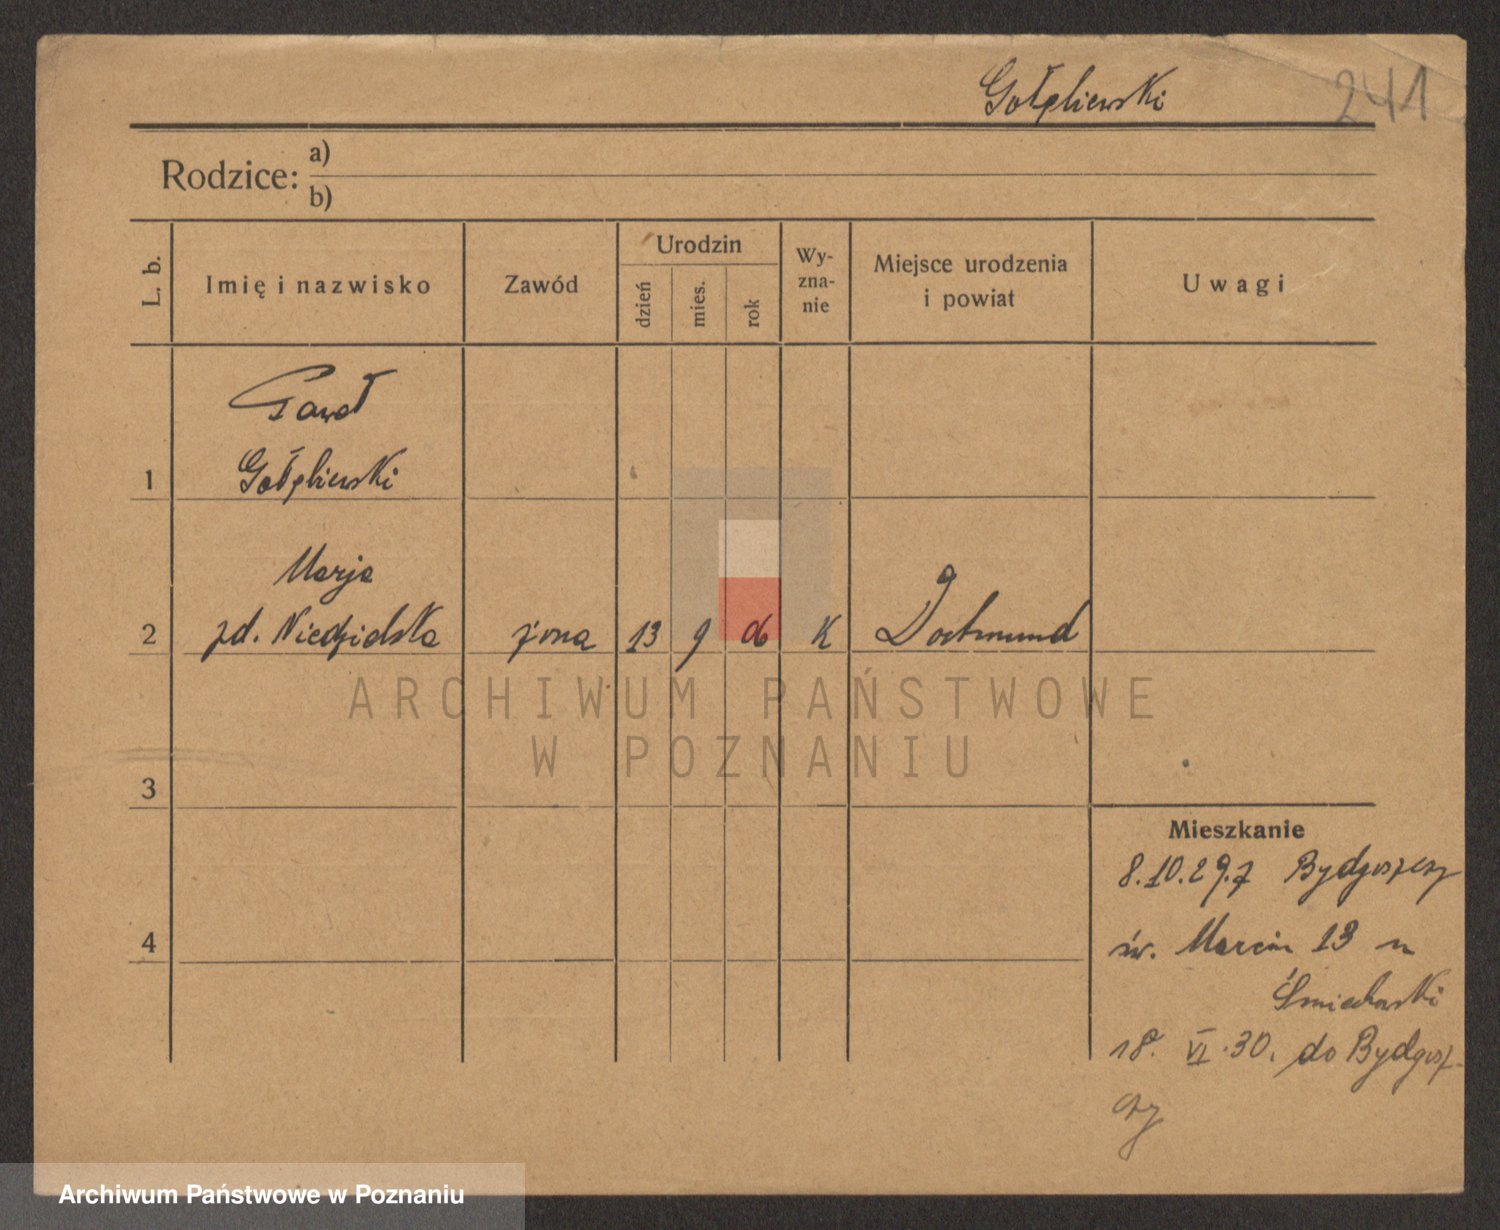 Gołębiewski 241
Rodzice: a)
b)
L. b.
Imię i nazwisko
Zawód
Urodzin
dzień
mies.
rok
Wy-
zna-
nie
Miejsce urodzenia
i powiat
Uwagi
Paweł
1 Gołębiewski
Marja
2 zd. Niedzielska żona 13 9 06 K Dortmund
ARCHIWUM PAŃSTWOWE
W POZNANIU
3
Mieszkanie
8.10.29. z Bydgoszczy
4 św. Marcin 13 u
Śmiechowski
18. VI. 30. do Bydgosz-
czy
Archiwum Państwowe w Poznaniu